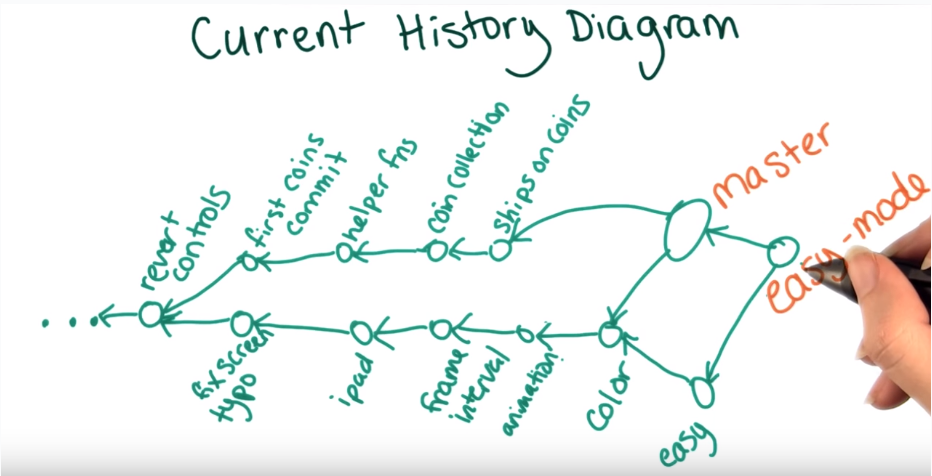 Current History Diagram
revert
controls
first coins
commit
helper fns
coin collection
ships on coins
master
easy-mode
fix screen
typo
ipad
frame
interval
animation
color
easy